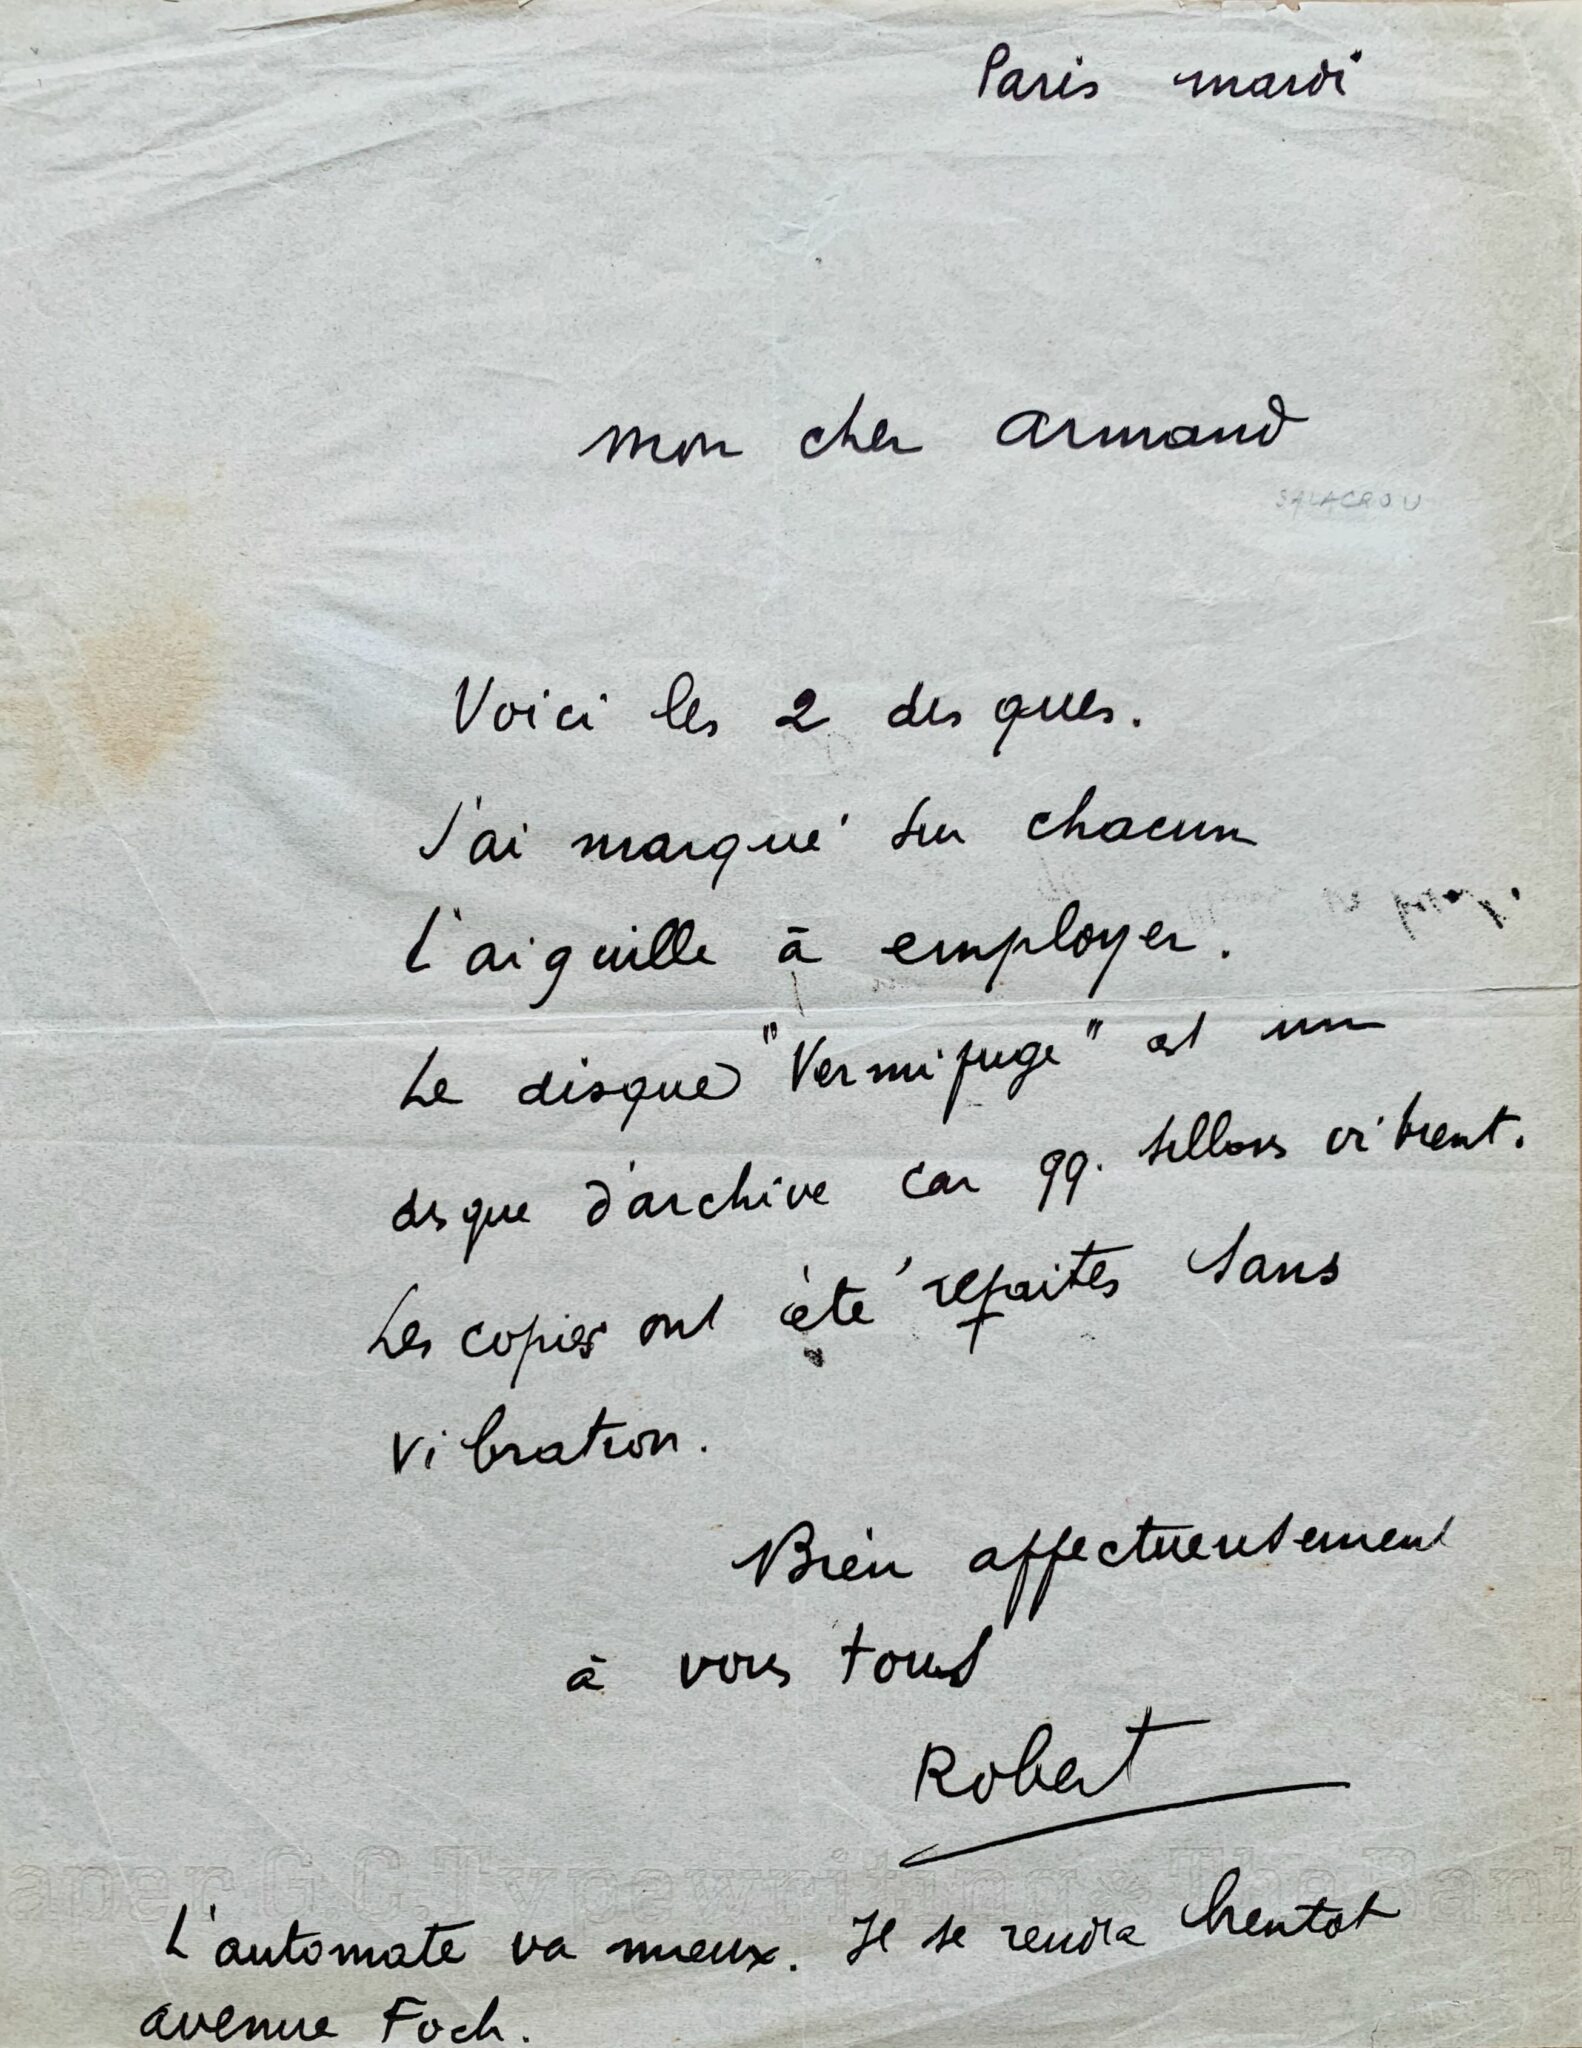 Paris mardi
Mon cher Armand
SALACROU
Voici les 2 disques.
J'ai marqué sur chacun
l'aiguille à employer.
Le disque "Vermifuge" est un
disque d'archive car qq. sillons vibrent.
Les copies ont été refaites sans
vibration.
Bien affectueusement
à vous tous
Robert
L'automate va mieux. Il se rendra bientot
avenue Foch.